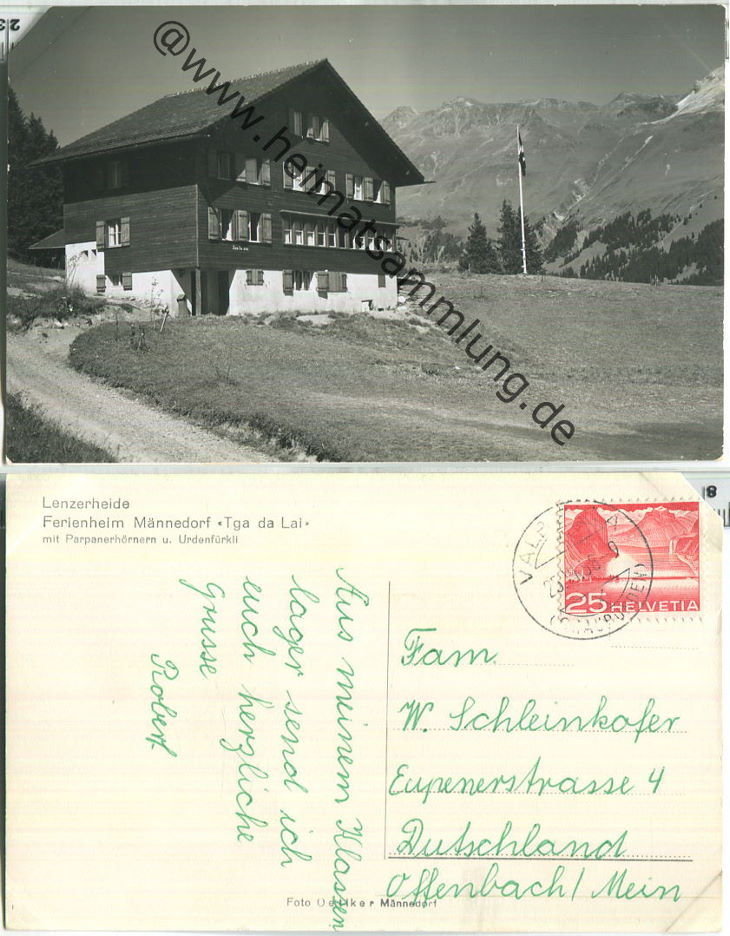 @www.heimatsammlung.de
Lenzerheide
Ferienheim Männedorf «Tga da Lai»
mit Parpanerhörnern u. Urdenfürkli
25 HELVETIA
Aus meinem Klassen
lager send ich
euch herzliche
Grüsse
Robert
Fam.
W. Schleinkofer
Eupenerstrasse 4
Dutschland
Offenbach/Mein
Foto Oetiker Männedorf